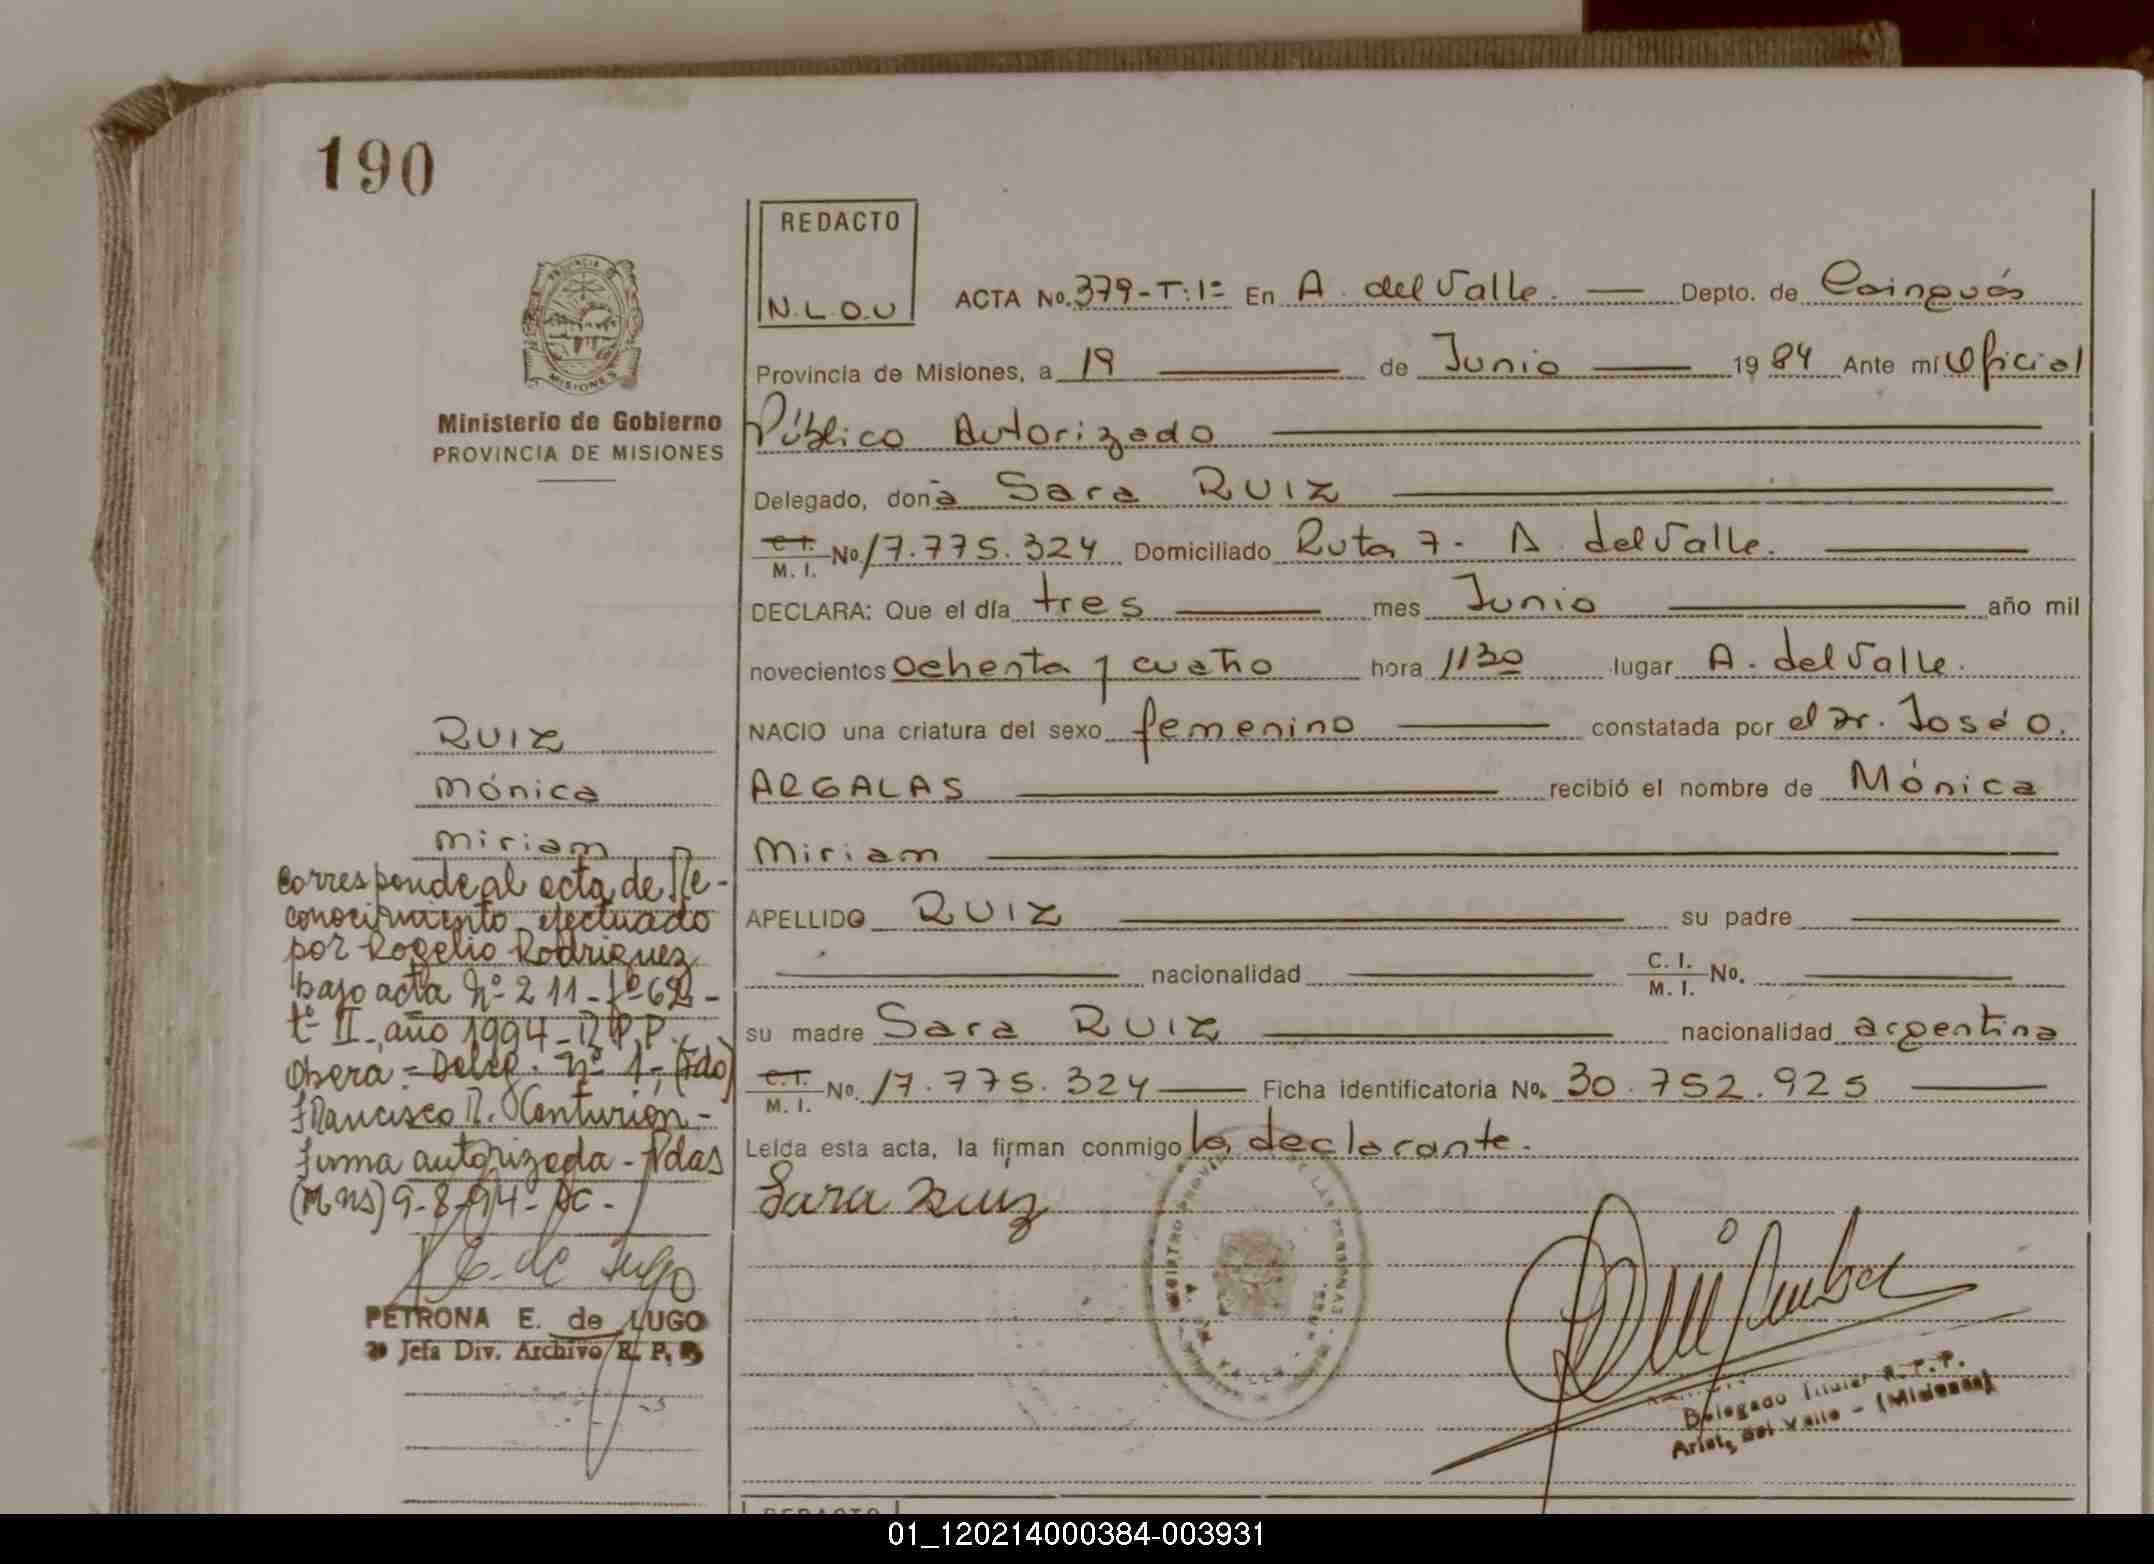 190
REDACTO
N.L.O.U
PROVINCIA DE
MISIONES
Ministerio de Gobierno
PROVINCIA DE MISIONES
ACTA No. 379-T:1º En A. del Valle. Depto. de Cainguás
Provincia de Misiones, a 19 de Junio 1984 Ante mí Oficial
Público Autorizado
Delegado, doña Sara RUIZ
C.I. M.I. No. 17.775.324 Domiciliado Ruta 7- A. del Valle.
DECLARA: Que el día tres mes Junio año mil
novecientos ochenta y cuatro hora 1130 lugar A. del Valle.
NACIO una criatura del sexo femenino constatada por el Dr. José O.
ARGALAS recibió el nombre de Mónica
Miriam
APELLIDO RUIZ su padre
nacionalidad C.I. M.I. No.
su madre Sara RUIZ nacionalidad argentina
C.I. M.I. No. 17.775.324 Ficha identificatoria No. 30.752.925
Leída esta acta, la firman conmigo la declarante.
Sara Ruiz
Delegado Titular R.P.P.
Arist. del Valle - (Misiones)
RUIZ
Mónica
Miriam
Corresponde al acta de Re-
conocimiento efectuado
por Rogelio Rodriguez
bajo acta Nº 211- fº
tº II- año 1994- R.P.P.
Obera - Deleg. Nº 1-, (Fdo)
Francisco R. Centurión-
firma autorizada - Pdas
(Mns) 9-8-94-
E. de Lugo
PETRONA E. de LUGO
Jefa Div. Archivo R. P. P.
REDACTO
01_120214000384-003931